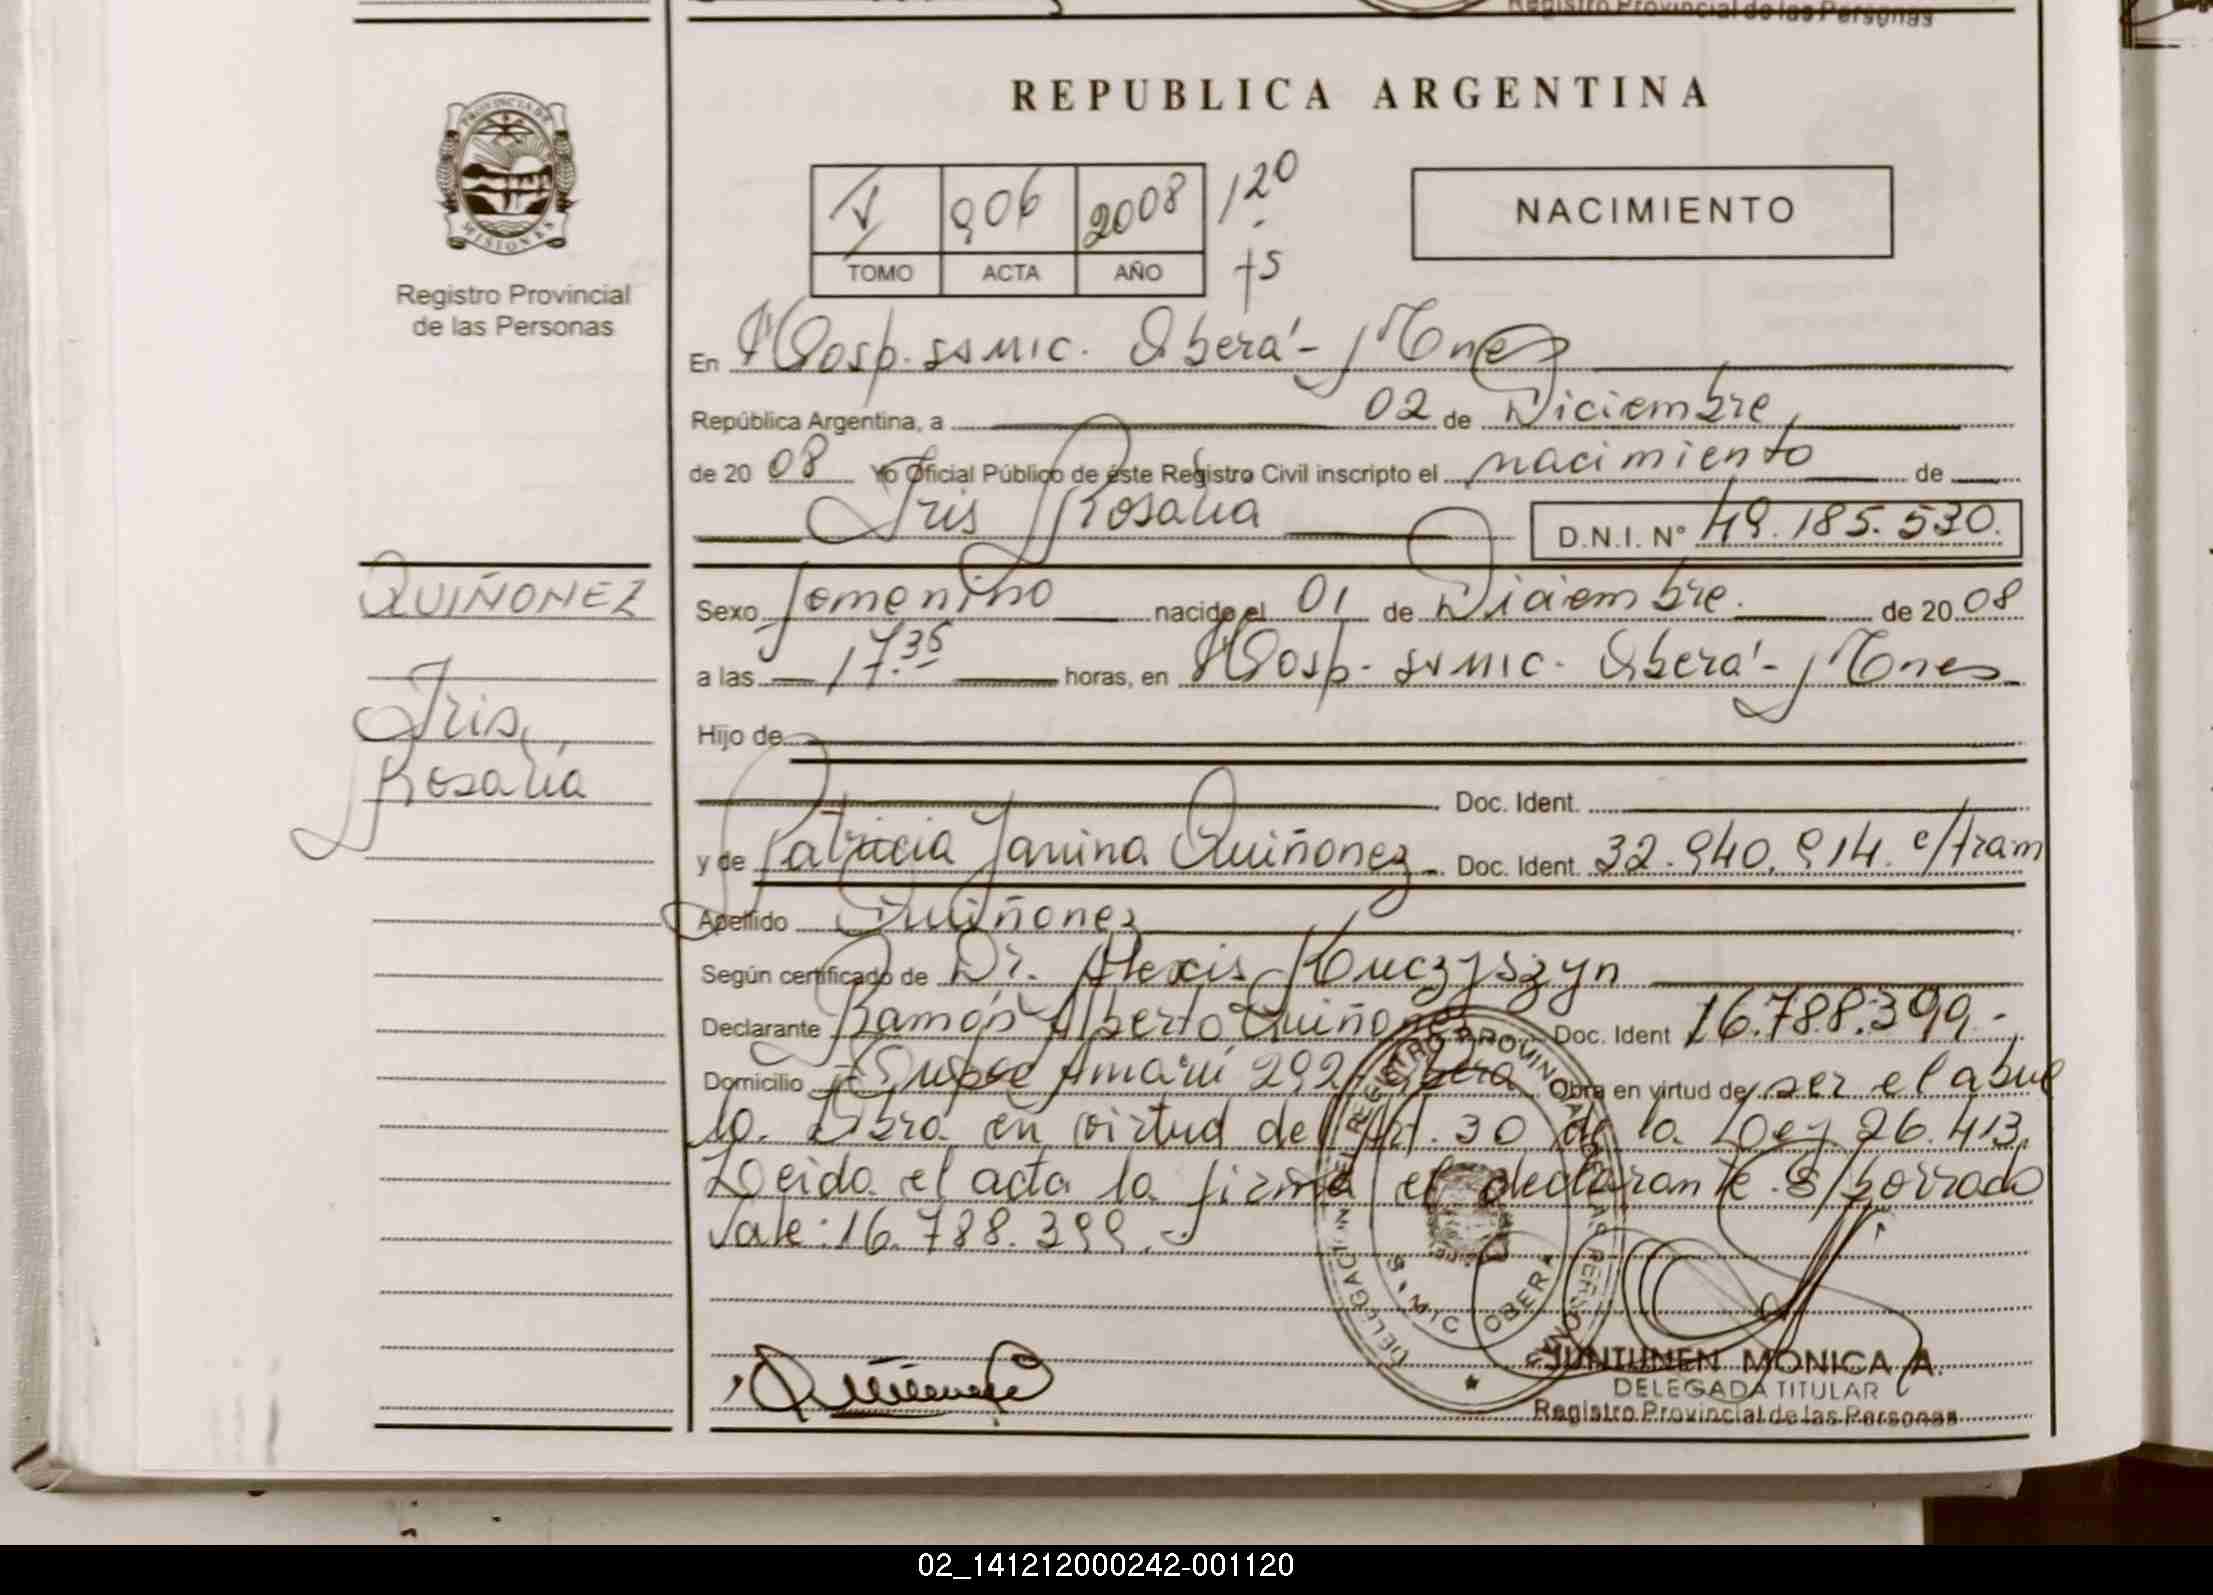 Registro Provincial de las Personas
REPUBLICA ARGENTINA
PROVINCIA DE
MISIONES
Registro Provincial
de las Personas
V 906 2008 120
TOMO ACTA AÑO +5
NACIMIENTO
En Hosp. SAMIC. Oberá - Mnes
República Argentina, a 02 de Diciembre
de 20 08 Yo Oficial Público de éste Registro Civil inscripto el nacimiento de
Iris Rosalia D.N.I. N° 49.185.530.
QUIÑONEZ
Iris,
Rosalía
Sexo femenino nacido el 01 de Diciembre. de 20 08
a las 17.35 horas, en Hosp. SAMIC. Oberá - Mnes
Hijo de
Doc. Ident.
y de Patricia Janina Quiñonez Doc. Ident. 32.940.914. c/tram
Apellido Quiñonez
Según certificado de Dr. Alexis Kuczyszyn
Declarante Ramón Alberto Quiñonez Doc. Ident 16.788.399.-
Domicilio Tupac Amarú 292 Oberá Obra en virtud de ser el abue
lo. Obra en virtud del Art. 30 de la Ley 26.413.
Leida el acta la firma el declarante. S/borrado
Vale: 16.788.399.-
DELEGACION REGISTRO PROVINCIAL DE LAS PERSONAS
S.A.MIC OBERA
JUNTUNEN MONICA A.
DELEGADA TITULAR
Registro Provincial de las Personas
02_141212000242-001120